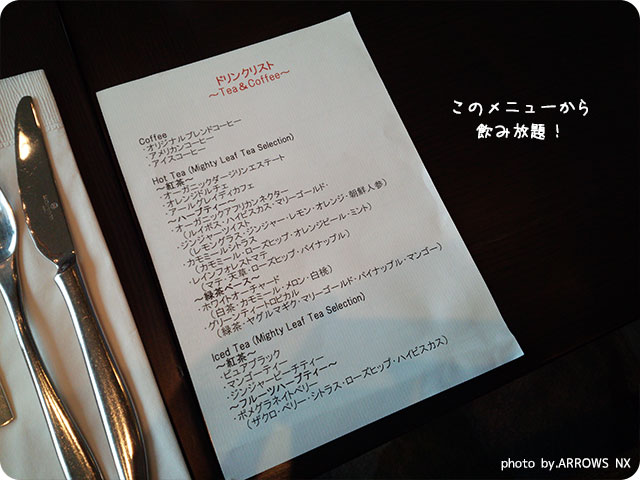 ドリンクリスト
～Tea＆Coffee～
Coffee
・オリジナルブレンドコーヒー
・アメリカンコーヒー
・アイスコーヒー
Hot Tea (Mighty Leaf Tea Selection)
～紅茶～
・オーガニックダージリンエステート
・オレンジドルチェ
・アールグレイディカフェ
～ハーブティー～
・オーガニックアフリカンネクター
（ルイボス・ハイビスカス・マリーゴールド・
・ジンジャーツイスト
（レモングラス・ジンジャー・レモン・オレンジ・朝鮮人参）
・カモミールシトラス
（カモミール・ローズヒップ・オレンジピール・ミント）
・レインフォレストマテ
（マテ・天草・ローズヒップ・パイナップル）
～緑茶ベース～
・ホワイトオーチャード
（白茶・カモミール・メロン・白桃）
・グリーンティートロピカル
（緑茶・ヤグルマギク・マリーゴールド・パイナップル・マンゴー）
Iced Tea (Mighty Leaf Tea Selection)
～紅茶～
・ピュアブラック
・マンゴーティー
・ジンジャーピーチティー
～フルーツハーブティー～
・ポメグラネイトベリー
（ザクロ・ベリー・シトラス・ローズヒップ・ハイビスカス）
このメニューから
飲み放題！
photo by.ARROWS NX